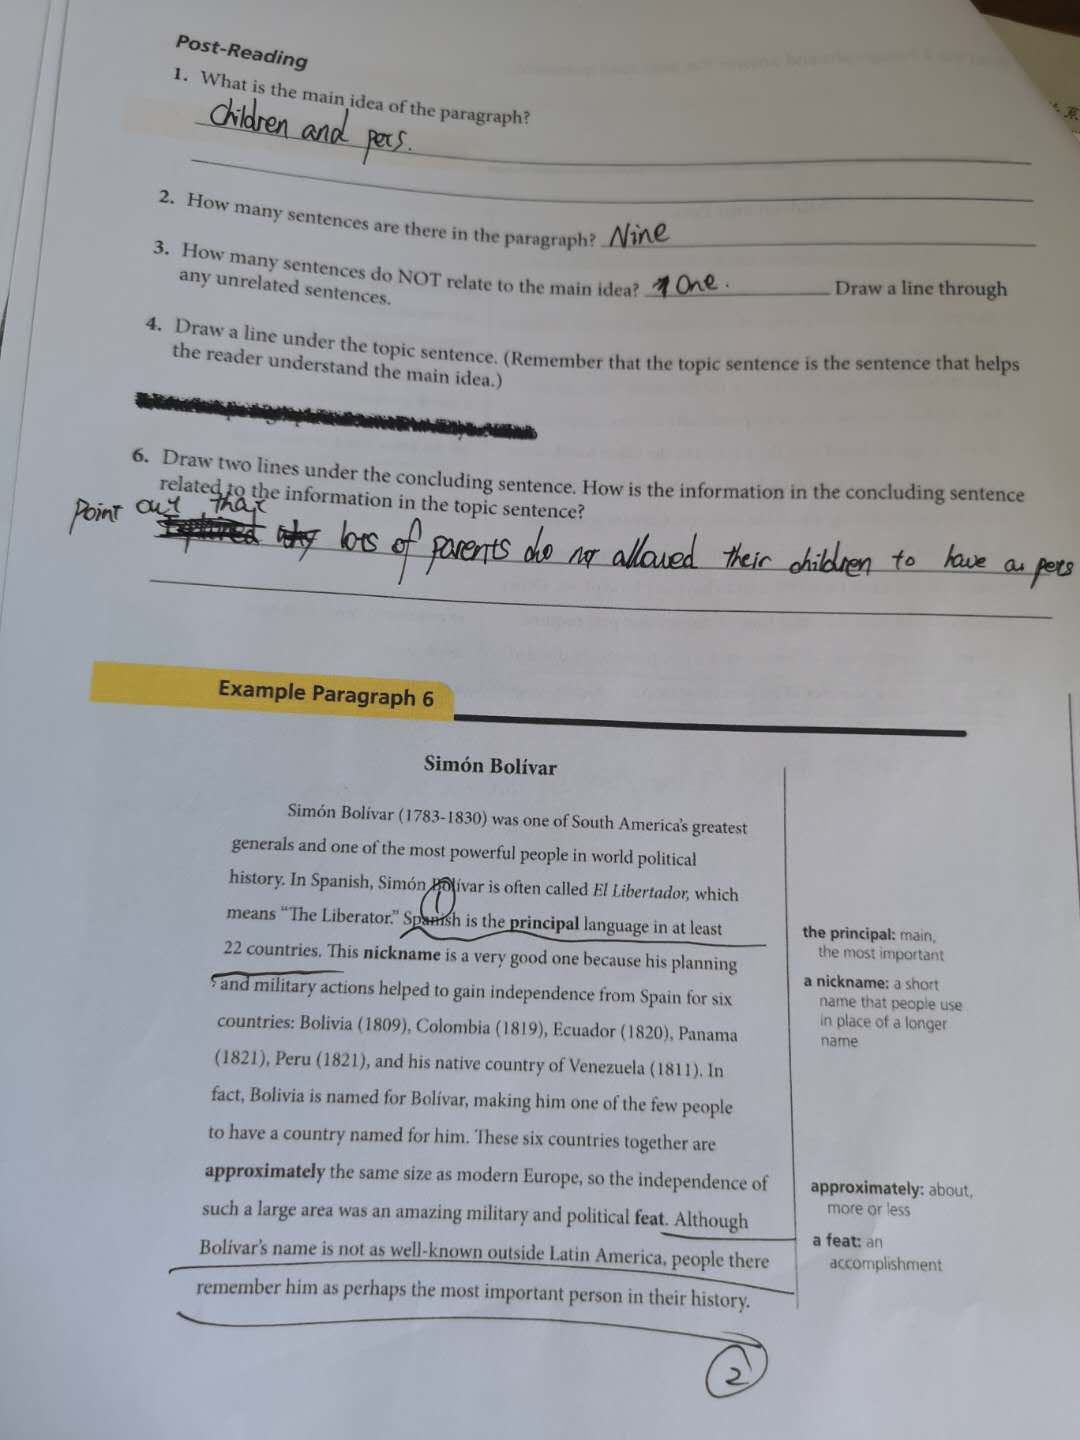 Post-Reading
1. What is the main idea of the paragraph?
Children and pets.
2. How many sentences are there in the paragraph? Nine
3. How many sentences do NOT relate to the main idea? One. Draw a line through
any unrelated sentences.
4. Draw a line under the topic sentence. (Remember that the topic sentence is the sentence that helps
the reader understand the main idea.)
6. Draw two lines under the concluding sentence. How is the information in the concluding sentence
related to the information in the topic sentence?
Point out that
lots of parents do not allowed their children to have a pets
Example Paragraph 6
Simón Bolívar
Simón Bolívar (1783-1830) was one of South America's greatest
generals and one of the most powerful people in world political
history. In Spanish, Simón Bolívar is often called El Libertador, which
1
means “The Liberator.” Spanish is the principal language in at least
22 countries. This nickname is a very good one because his planning
and military actions helped to gain independence from Spain for six
countries: Bolivia (1809), Colombia (1819), Ecuador (1820), Panama
(1821), Peru (1821), and his native country of Venezuela (1811). In
fact, Bolivia is named for Bolívar, making him one of the few people
to have a country named for him. These six countries together are
approximately the same size as modern Europe, so the independence of
such a large area was an amazing military and political feat. Although
Bolívar's name is not as well-known outside Latin America, people there
remember him as perhaps the most important person in their history.
2
the principal: main,
the most important
a nickname: a short
name that people use
in place of a longer
name
approximately: about,
more or less
a feat: an
accomplishment